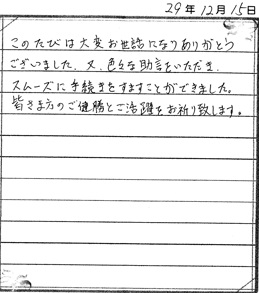 29年12月15日
このたびは大変お世話になりありがとう
ございました。又、色々な助言をいただき、
スムーズに手続きをすますことができました。
皆さま方のご健勝とご活躍をお祈り致します。